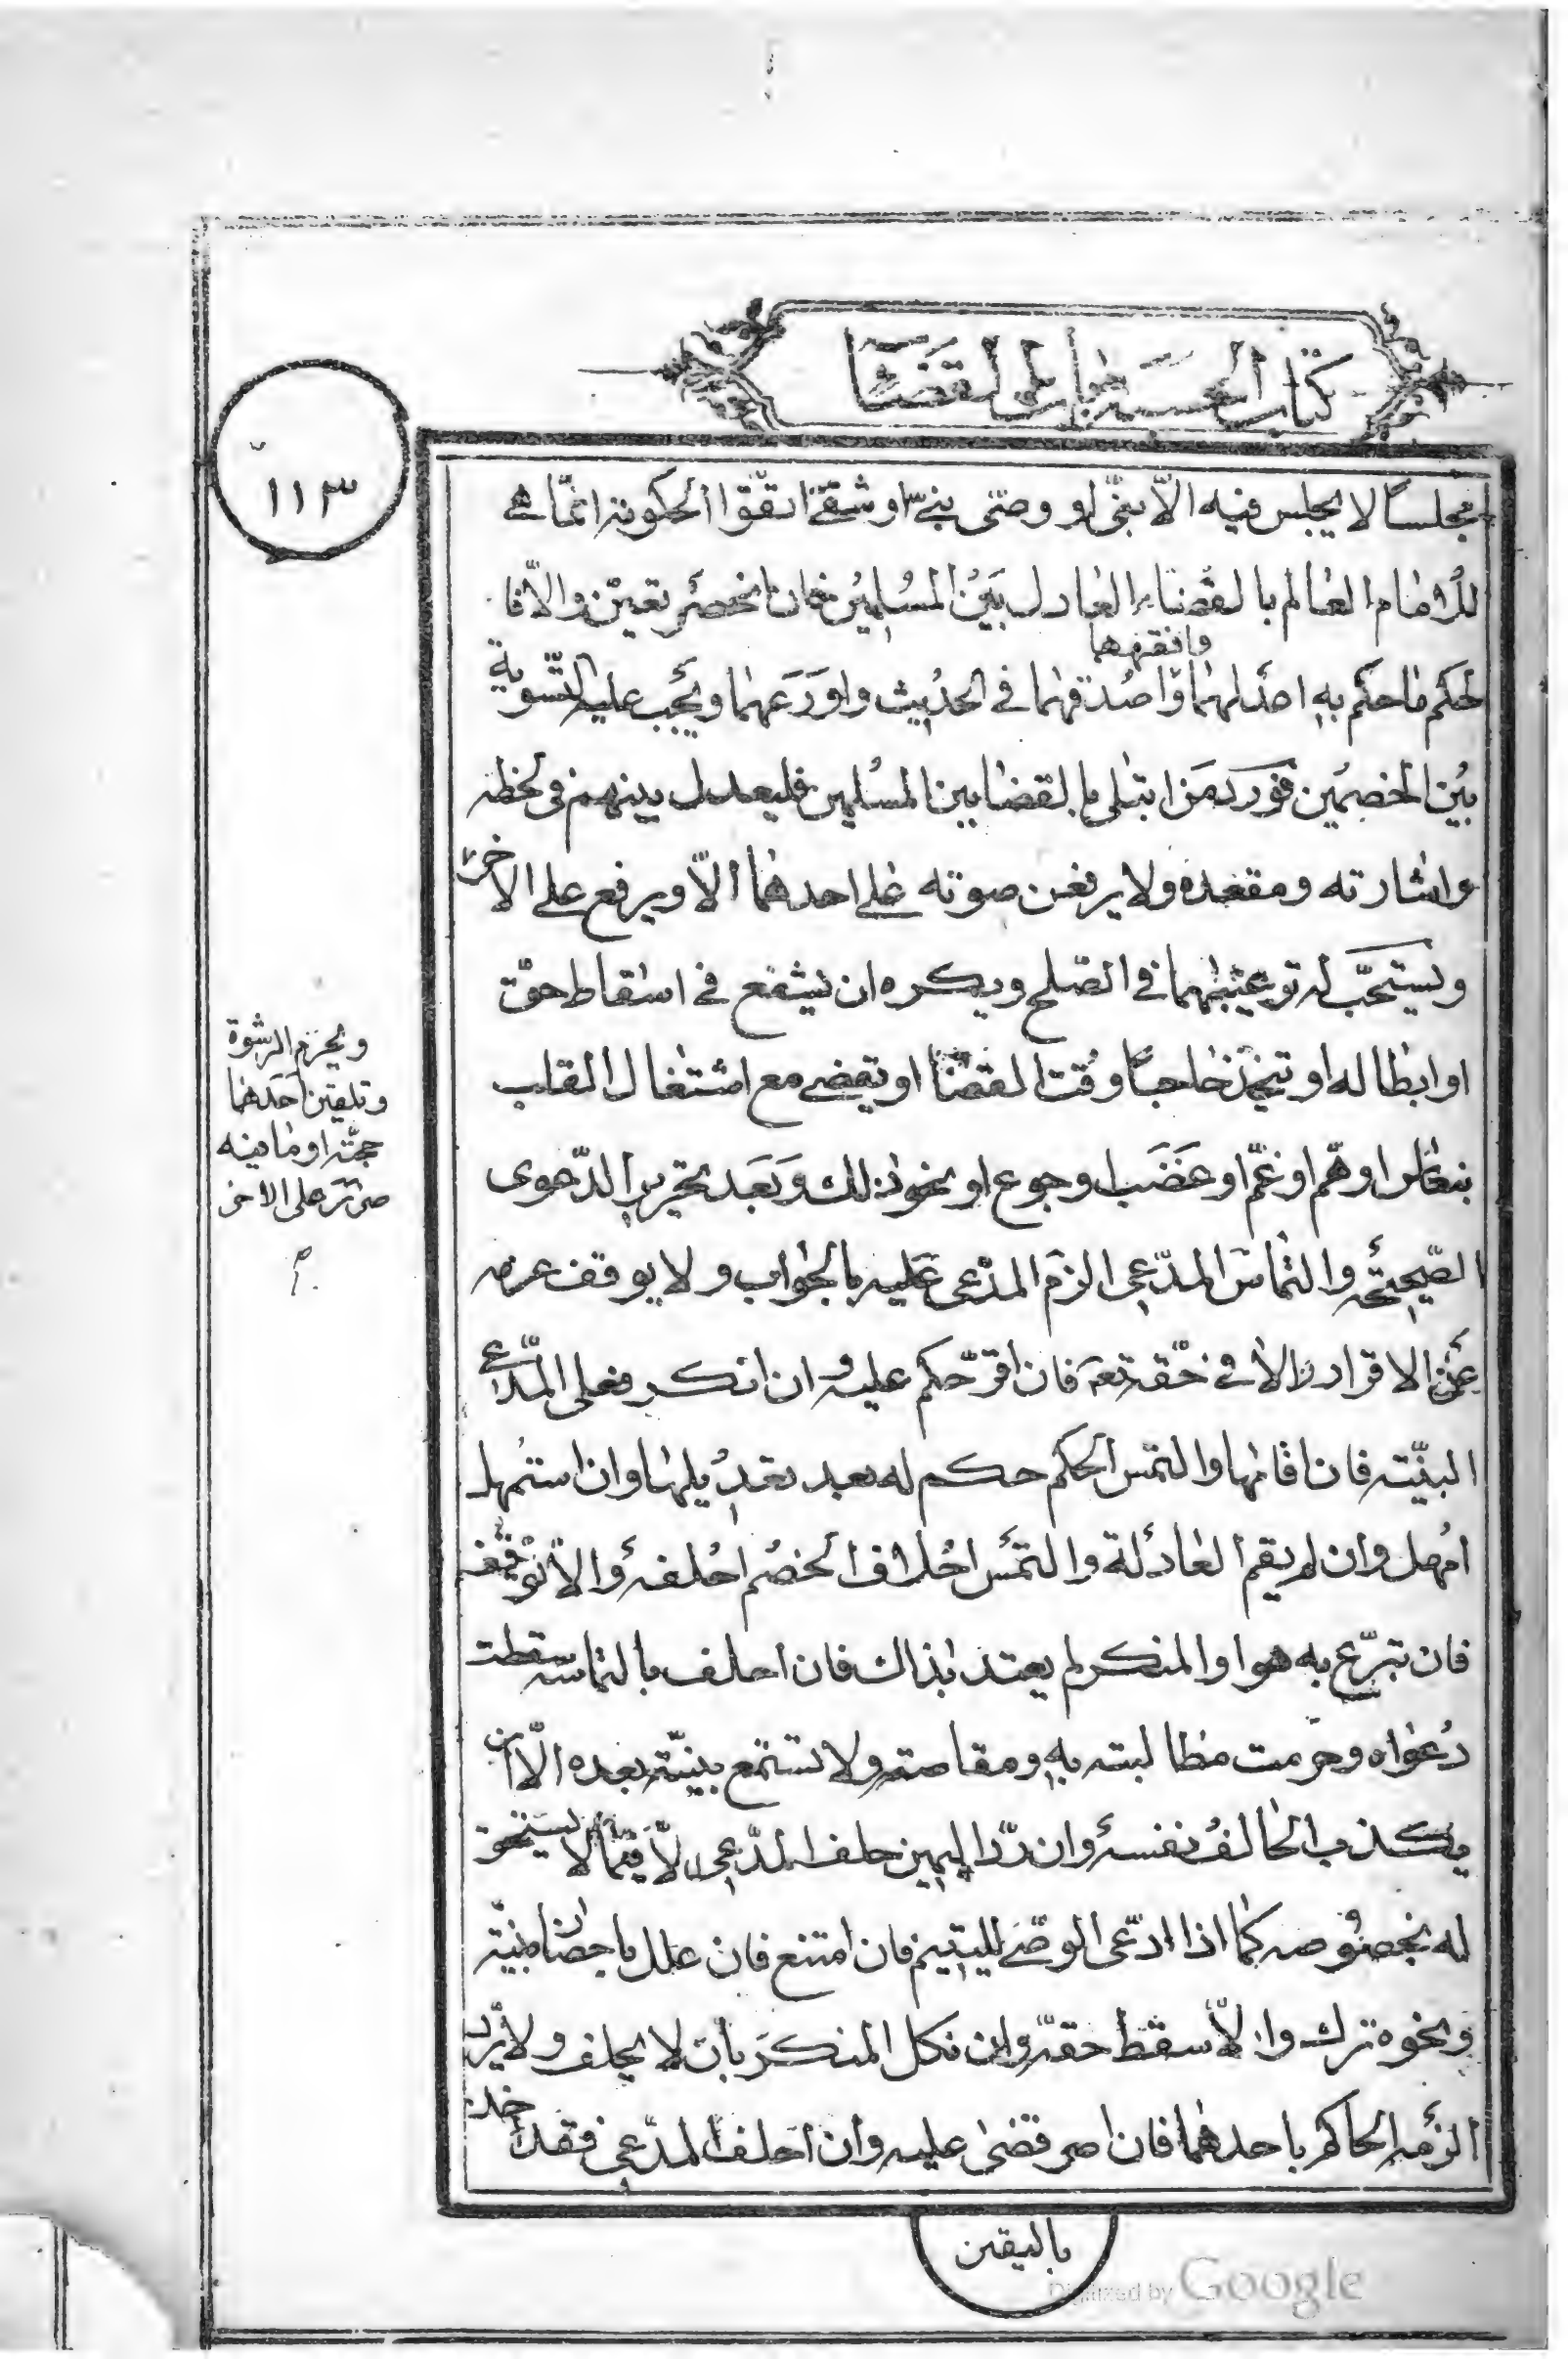 كتاب الحسبة باب القضاء
١١٣
مجلسا لا يجلس فيه الّا نبيّ او وصّى نبيّ او شقيّ اتقّوا الحكومة انمّا هي
للامام العالم بالقضاء العادل بين المسلمين فان انحصر تعيّن والّا فا
وافقههما
لحكم ما حكم به اعدلهما واصدقهما في الحديث واورعهما ويجب عليه التسّوية
بين الخصمين فورد من ابتلى بالقضا بين المسلمين فليعدل بينهم في لحظه
واشارته ومقعده ولا يرفعن صوته على احدهما الّا ويرفع على الاخر
ويستحبّ له ترغيبهما في الصّلح ويكره ان يشفع في اسقاط حقّ
او ابطاله او يتّخذ حاجبا وقت القضا او يقضي مع اشتغال القلب
بنعاس او همّ او غمّ او غضب او جوع او نحو ذلك وبعد تحرير الدّعوى
الصّحيحة والتماس المدّعي الزم المدّعى عليه بالجواب ولا يوقف عزمه
عن الاقرار الا في حقّه تعه فان اقرّ حكم عليه وان انكر فعلى المدّعي
البيّنه فان اقامها والتمس الحكم حكم له بعد تعديلها وان استمهل
امهل وان لم يقم العادلة والتمس احلاف الخصم احلفه والّا توقّف
فان تبرّع به هو او المنكر لم يعتد بذاك فان احلف بالتماسه سقطت
دعواه وحرّمت مطالبته به ومقاصته ولا تستمع بيّنته بعده الّا ان
يكذب الحالف نفسه وان ردّ اليمين حلف المدّعي الّا فيما لا يستحق
له بخصوصه كما اذا ادّعى الوصّي لليتيم فان امتنع فان علل باحضار بيّنة
ونحوه ترك والّا سقط حقّه وان نكل المنكر بان لا يحلف ولا يردّ
الزمه الحاكم باحدهما فان اصر قضى عليه وان احلف المدّعي فقد اخذ
ويحرم الرشوة
وتلقين احدهما
حجّته او ما فيه
ضرر على الاخر
باليقين
Digitized by Google